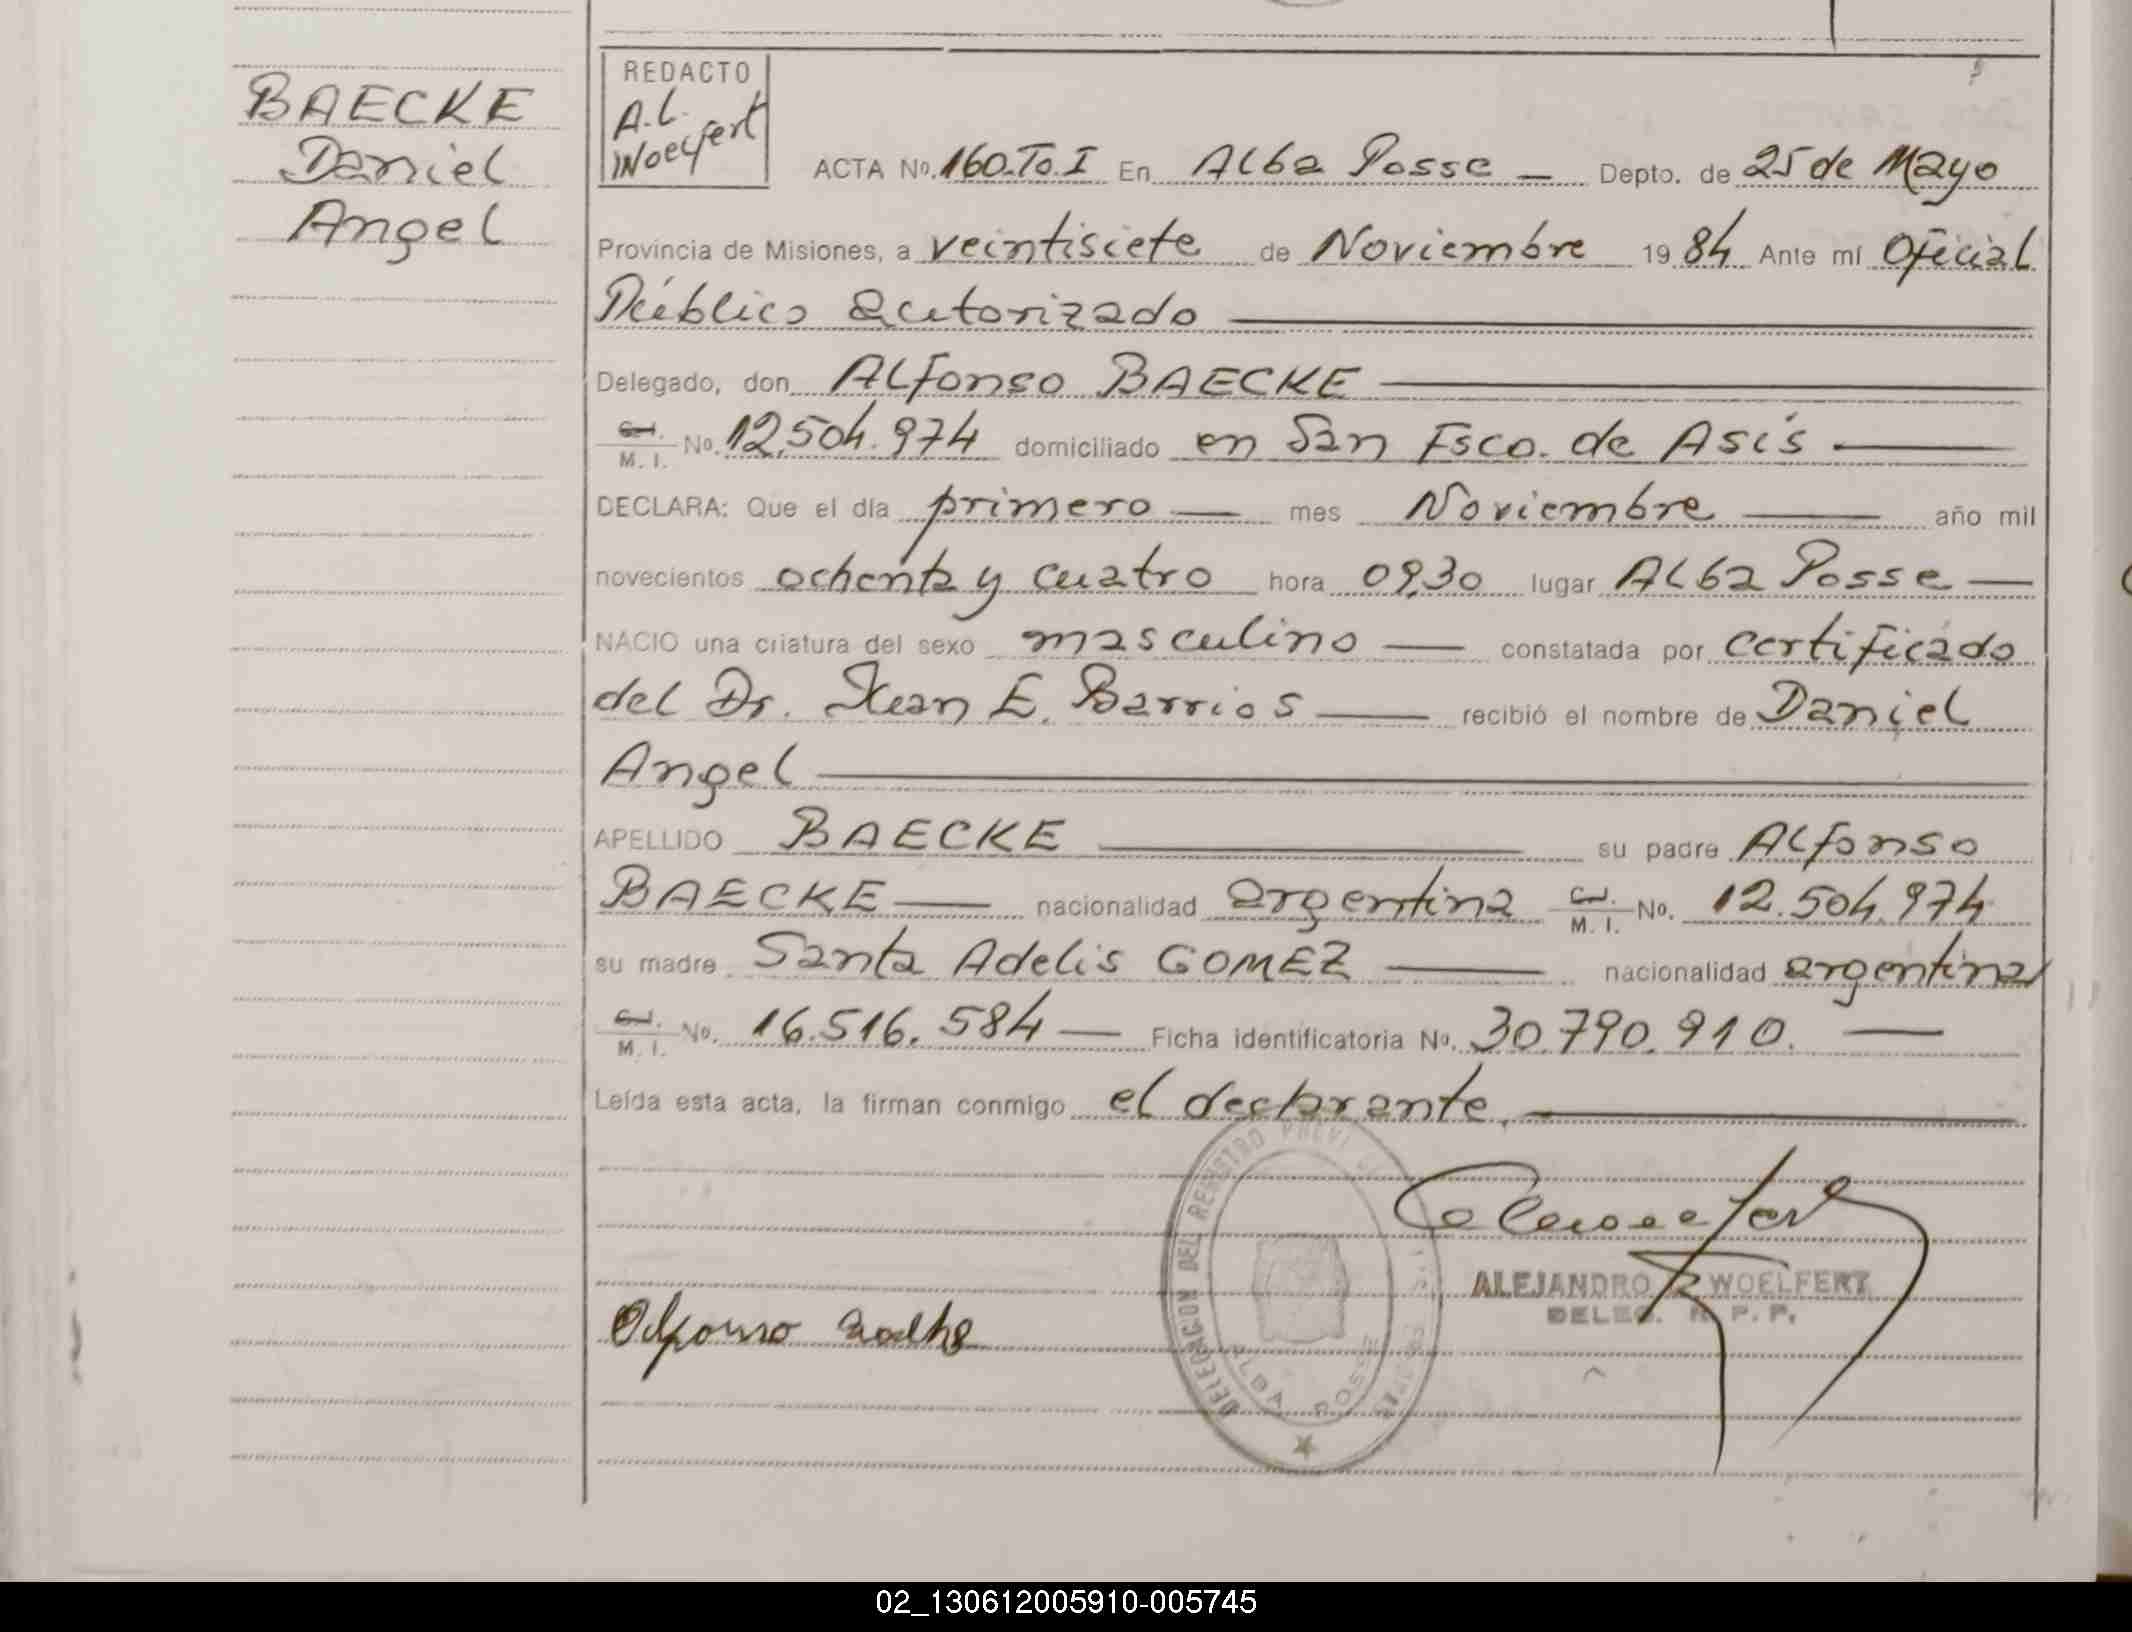 BAECKE
Daniel
Angel
REDACTO
A.L.
Woelfert
ACTA No. 160.To.I En Alba Posse — Depto. de 25 de Mayo
Provincia de Misiones, a veintisiete de Noviembre 19 84 Ante mí Oficial
Público autorizado
Delegado, don Alfonso BAECKE
C.I.
M. I. No. 12.504.974 domiciliado en San Fsco. de Asís
DECLARA: Que el día primero — mes Noviembre — año mil
novecientos ochenta y cuatro hora 09,30 lugar Alba Posse —
NACIO una criatura del sexo masculino — constatada por certificado
del Dr. Juan E. Barrios — recibió el nombre de Daniel
Angel
APELLIDO BAECKE — su padre Alfonso
BAECKE — nacionalidad argentina C.I.
M. I. No. 12.504.974
su madre Santa Adelis GOMEZ — nacionalidad argentina
C.I.
M. I. No. 16.516.584 — Ficha identificatoria No. 30.790.910. —
Leída esta acta, la firman conmigo el declarante.
DELEGACION DEL REGISTRO
ALBA POSSE
ALEJANDRO L. WOELFERT
DELEG. R. P. P.
Alfonso
02_130612005910-005745